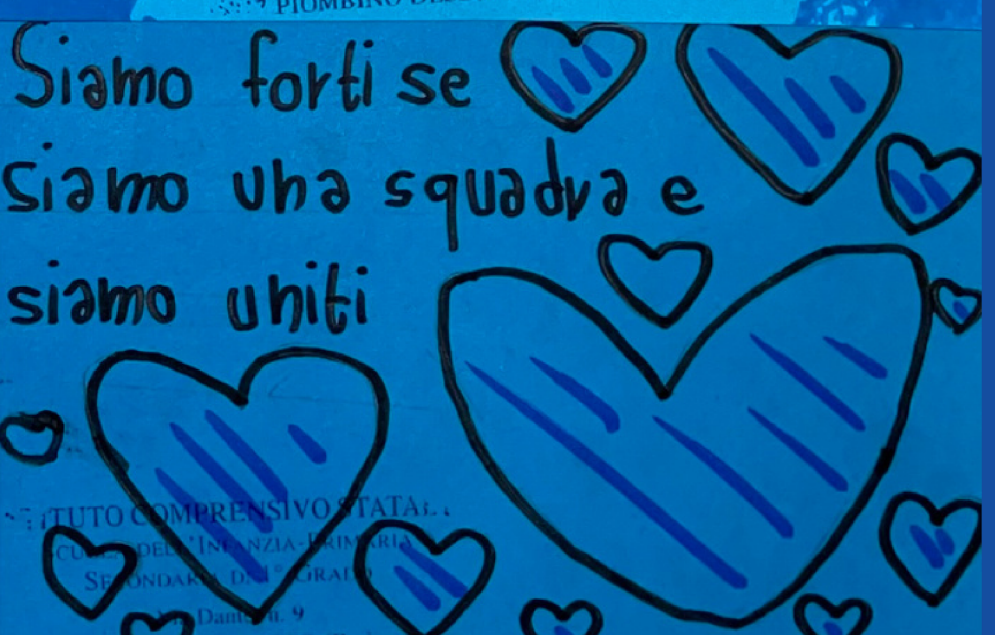 PIOMBINO
Siamo forti se
siamo una squadra e
siamo uniti
ISTITUTO COMPRENSIVO STATALE
SCUOLA DELL'INFANZIA-PRIMARIA
SECONDARIA DI 1° GRADO
Via Dante n. 9